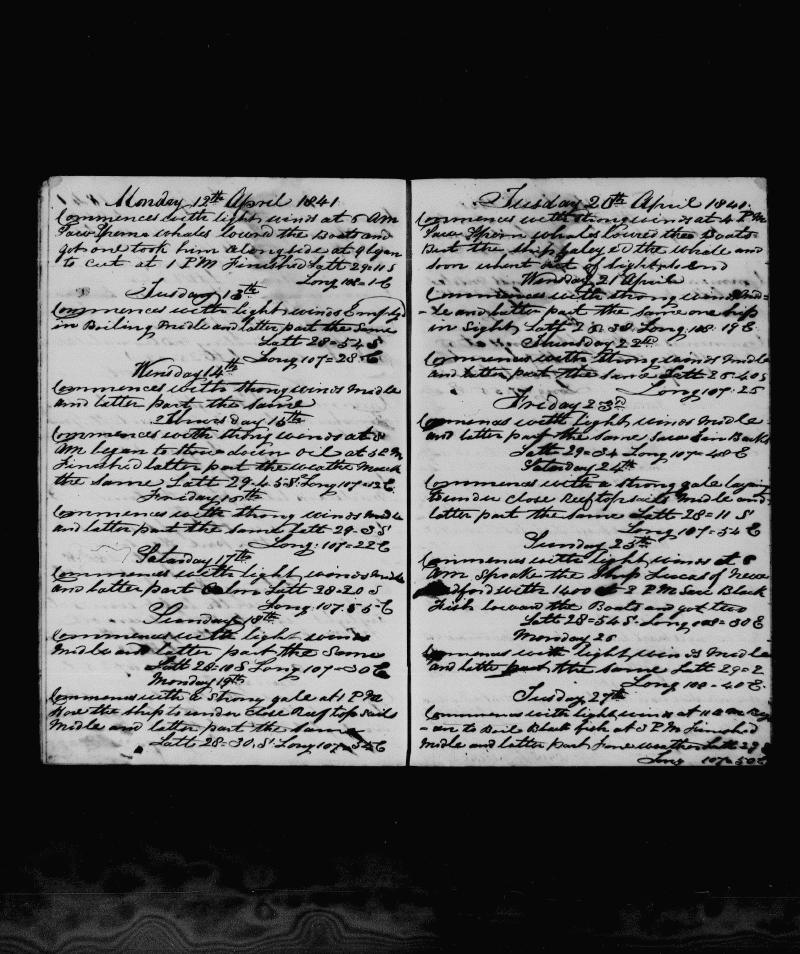 Monday 12th April 1841
Commences with light winds at 5 AM
Saw Sperm whales lowered the Boats and
got one took him along side at 9 began
to Cut at 1 PM Finished Latt 29=11 S
Long 108=1 E
Tusday 13th
Commences with light winds Employd
in Boiling Midle and latter part the Same
Latt 28=54 S
Long 107=28 E
Wensday 14th
Commences with strong winds Midle
and latter part the same
Thursday 15th
Commences with strong winds at 8
AM began to stow down oil at 5 PM
Finished latter part the weather Much
the same Latt 29-4 5 S Long 107=12 E
Friday 16th
Commences with strong winds Midle
and latter part the same Latt 29-3 S
Long 107=22 E
Satarday 17th
Commences with light winds Midle
and latter part Calm Latt 28-20 S
Long 107.55 E
Sunday 18th
Commences with light winds
Midle and latter part the Same
Latt 28=10 S Long 107=30 E
Monday 19th
Commences with a strong gale at 1 PM
the ship to under Close Reef top sails
Midle and latter part the same
Latt 28=30 S Long 107=34 E
Tuesday 20th April 1841
Commences with strong winds at 4 PM
Saw Sperm whales lowred the Boats
But the ship the whale and
soon whent out of sight
Wensday 21 April
Commences with strong winds Mid=
-le and latter part the same one ship
in Sight Latt 28=38 Long 108=19 E
Thursday 22d
Commences with strong winds Midle
and latter part the same Latt 28-40 S
Long 107=25
Friday 23d
Commences with light winds Midle
and latter part the same Saw Fin Backs
Latt 29=34 Long 107=48 E
Satarday 24th
Commences with a strong gale laying
to under close Reef top sails Midle and
latter part the same Latt 28=11 S
Long 107=54 E
Sunday 25th
Commences with light winds at 8
AM Spoke the Ship Lucas of New
Bedford with 1400 at 2 PM Saw Black
Fish lowered the Boats and got two
Latt 28=54 S Long 108=30 E
Monday 26
Commences with light winds Midle
and latter part the same Latt 29=2
Long 108=40 E
Tusday 27th
Commences with light winds at 11 AM Beg
-an to Boil Black fish at 3 PM Finished
Midle and latter part Fine weather Latt 29 S
Long 107=50 E